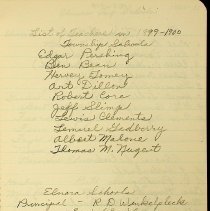 List of Teachers in 1899-1900
Township Schools
Edgar Pershing
Ben Bean
Harvey Toney
Art Dillon
Robert Cora
Jeff Slimp
Lewis Clements
Lemuel Gadberry
Albert Malone
Thomas M. Nugent
Elnora Schools
Principal - R. D.